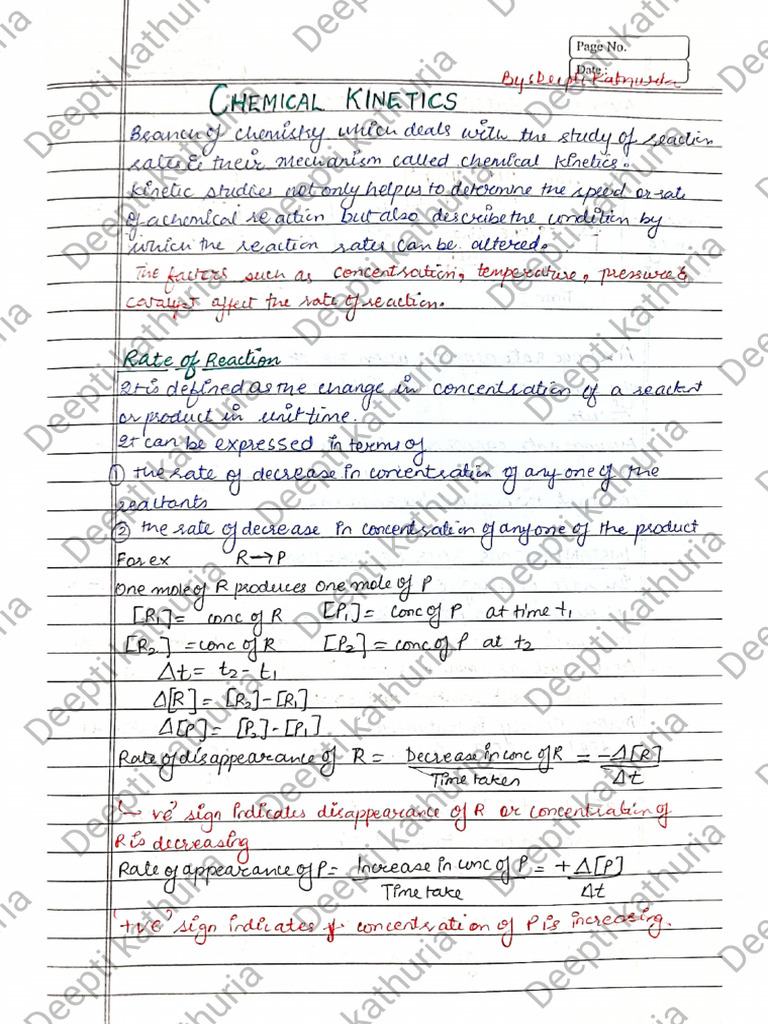 Page No.
Date :
By:Deepti Kathuria
CHEMICAL KINETICS
Branch of chemistry which deals with the study of reaction
rates & their mechanism called chemical kinetics.
Kinetic studies not only help us to determine the speed or rate
of a chemical reaction but also describe the condition by
which the reaction rates can be altered.
The factors such as concentration, temperature, pressure &
catalyst affect the rate of reaction.
Rate of Reaction
It is defined as the change in concentration of a reactant
or product in unit time.
It can be expressed in terms of
① the rate of decrease in concentration of any one of the
reactants
② the rate of decrease in concentration of any one of the product
For ex R→P
One mole of R produces one mole of P
[R₁] = conc of R [P₁] = conc of P at time t₁
[R₂] = conc of R [P₂] = conc of P at t₂
Δt = t₂ - t₁
Δ[R] = [R₂] - [R₁]
Δ[P] = [P₂] - [P₁]
Rate of disappearance of R = Decrease in conc of R / Time taken = -Δ[R] / Δt
'- ve' sign indicates disappearance of R or concentration of
R is decreasing
Rate of appearance of P = Increase in conc of P / Time take = + Δ[P] / Δt
'+ve' sign indicates concentration of P is increasing.
Deepti Kathuria